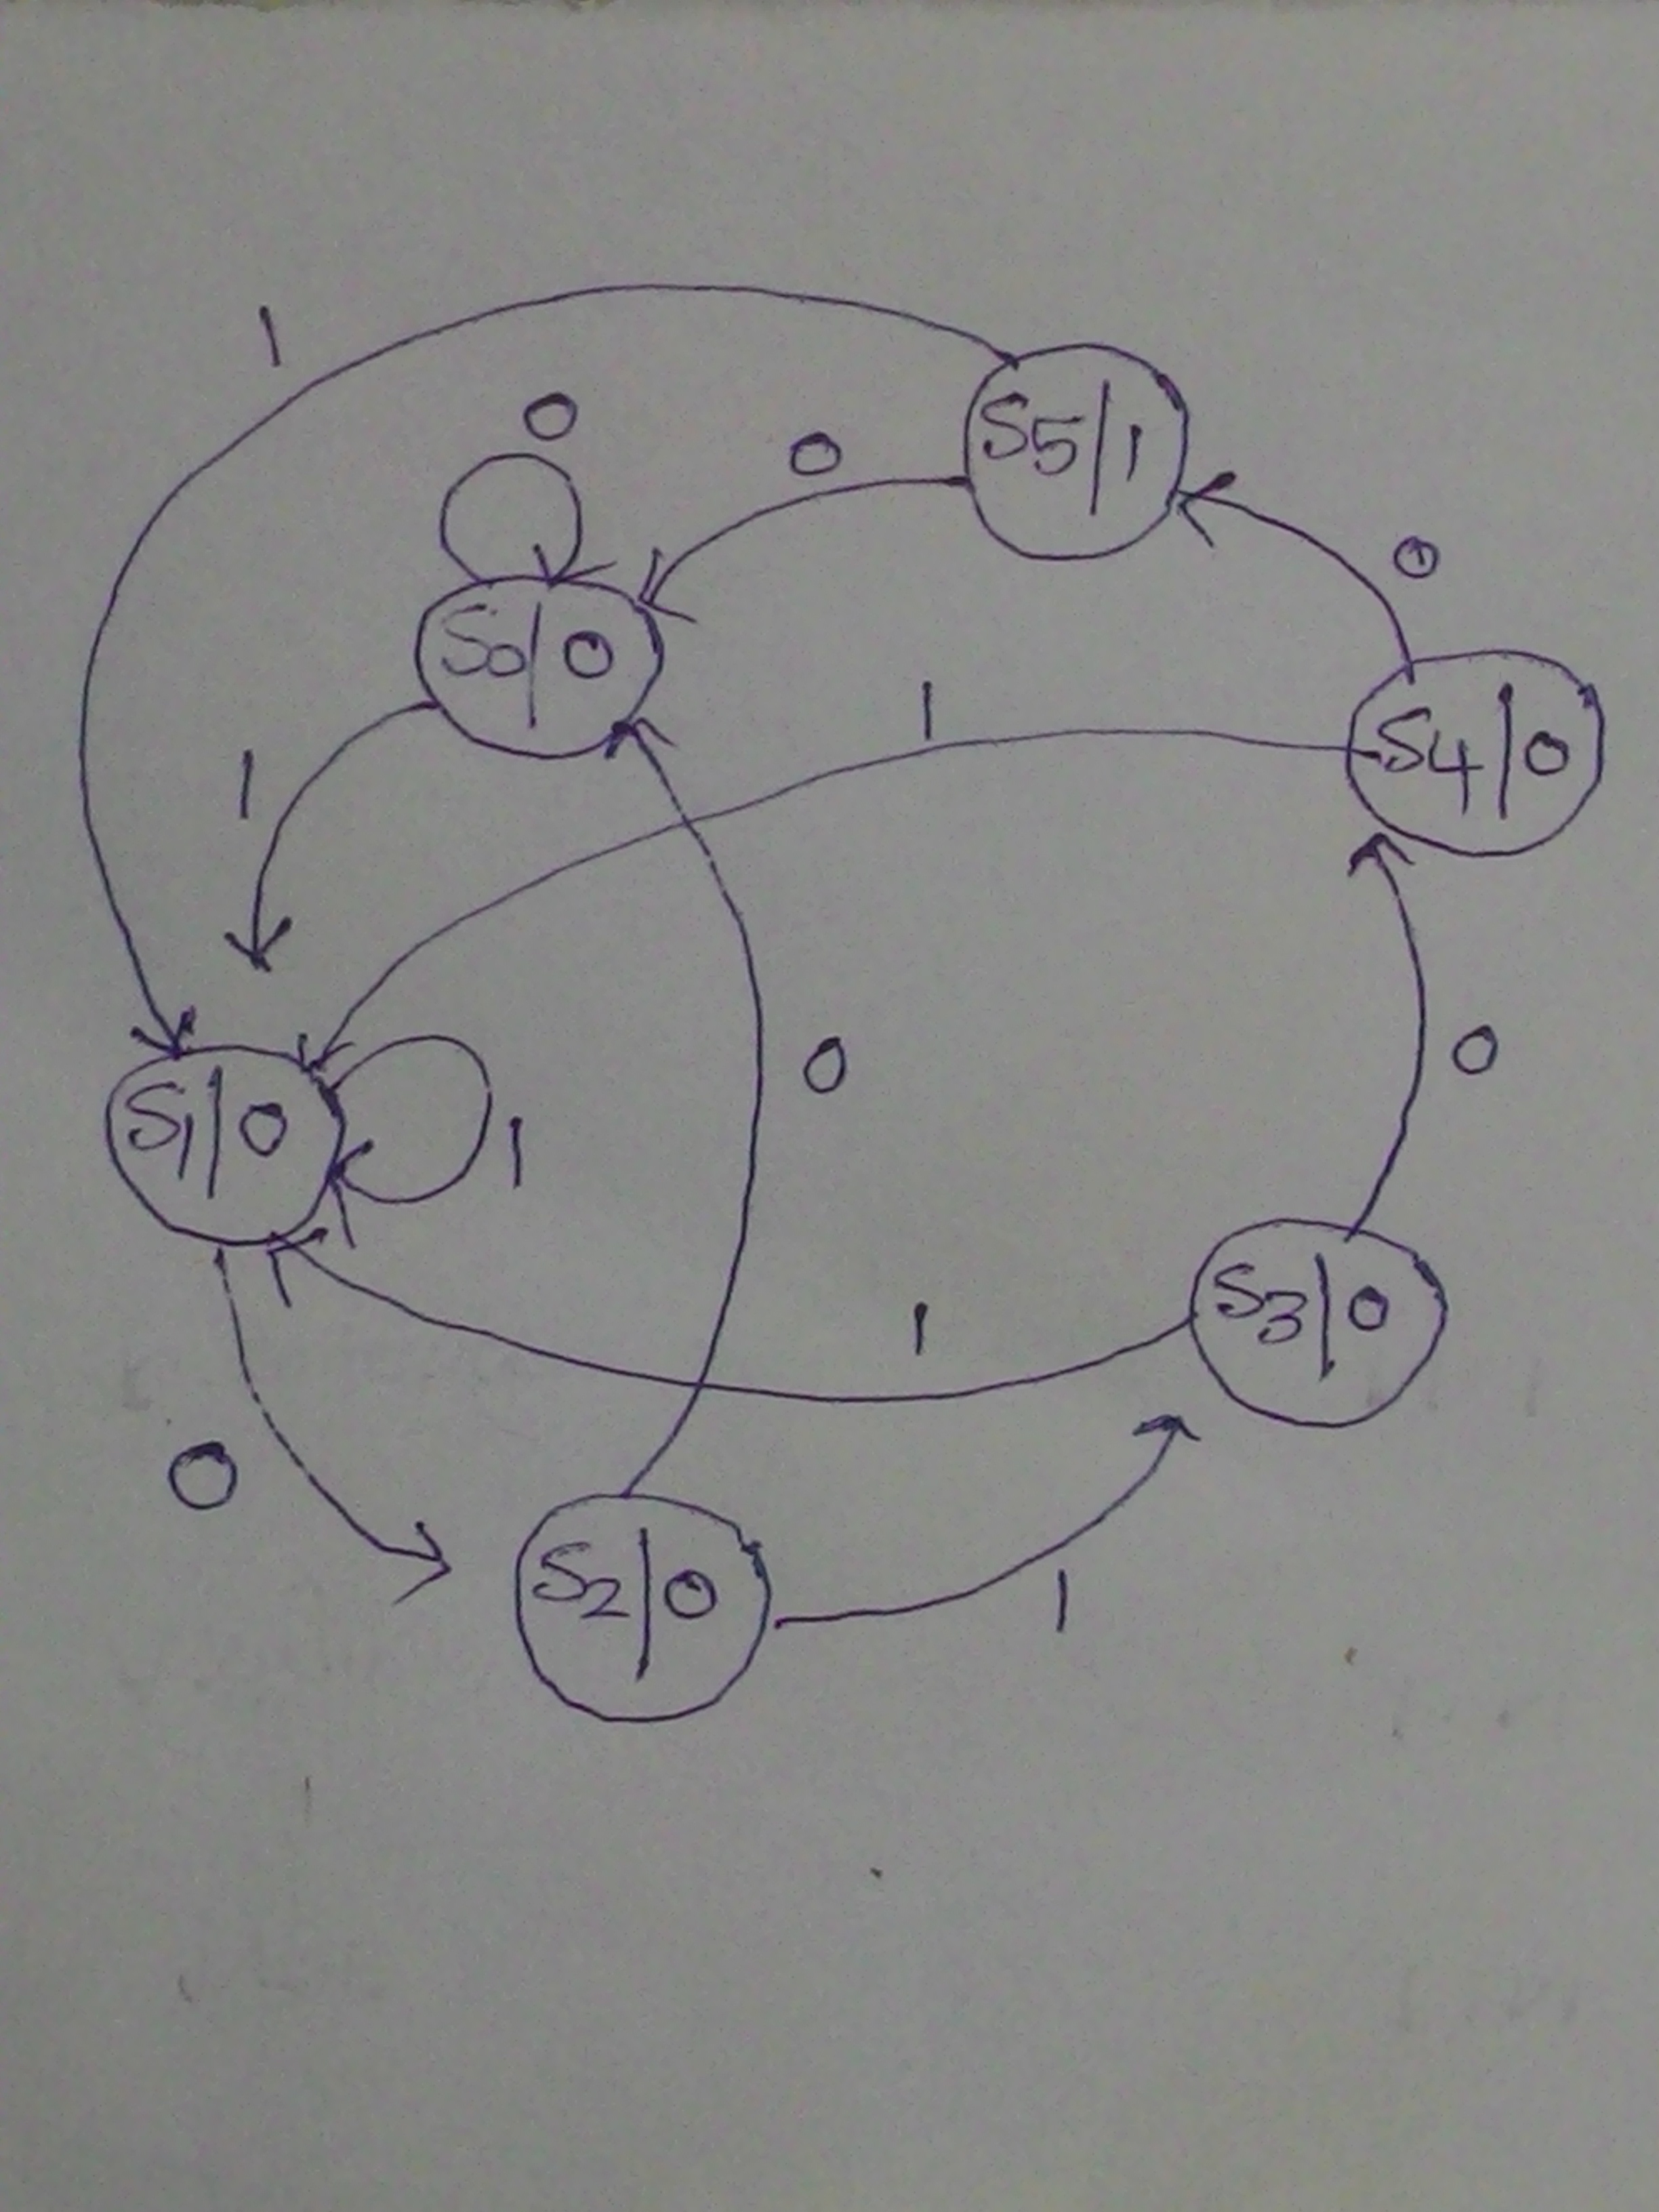 1
0
0
S5/1
0
S0|0
1
1
S4|0
0
0
S1|0
1
1
S3|0
0
S2|0
1